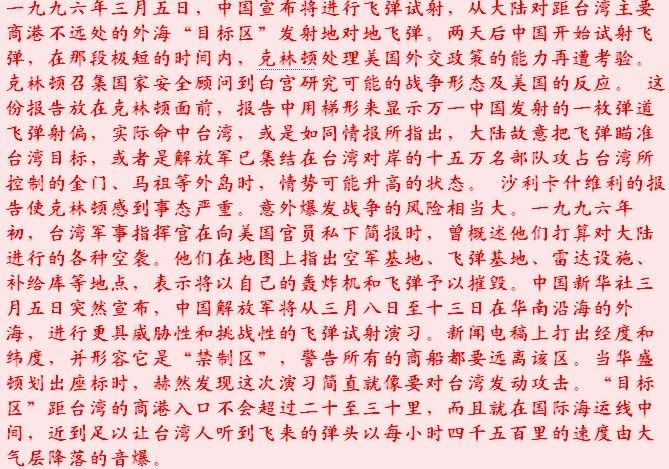 一九九六年三月五日，中国宣布将进行飞弹试射，从大陆对距台湾主要
商港不远处的外海“目标区”发射地对地飞弹。两天后中国开始试射飞
弹，在那段极短的时间内，克林顿处理美国外交政策的能力再遭考验。
克林顿召集国家安全顾问到白宫研究可能的战争形态及美国的反应。 这
份报告放在克林顿面前，报告中用梯形来显示万一中国发射的一枚弹道
飞弹射偏，实际命中台湾，或是如同情报所指出，大陆故意把飞弹瞄准
台湾目标，或者是解放军已集结在台湾对岸的十五万名部队攻占台湾所
控制的金门、马祖等外岛时，情势可能升高的状态。 沙利卡什维利的报
告使克林顿感到事态严重。意外爆发战争的风险相当大。一九九六年
初，台湾军事指挥官在向美国官员私下简报时，曾概述他们打算对大陆
进行的各种空袭。他们在地图上指出空军基地、飞弹基地、雷达设施、
补给库等地点，表示将以自己的轰炸机和飞弹予以摧毁。中国新华社三
月五日突然宣布，中国解放军将从三月八日至十三日在华南沿海的外
海，进行更具威胁性和挑战性的飞弹试射演习。新闻电稿上打出经度和
纬度，并形容它是“禁制区”，警告所有的商船都要远离该区。当华盛
顿划出座标时，赫然发现这次演习简直就像要对台湾发动攻击。“目标
区”距台湾的商港入口不会超过二十至三十里，而且就在国际海运线中
间，近到足以让台湾人听到飞来的弹头以每小时四千五百里的速度由大
气层降落的音爆。